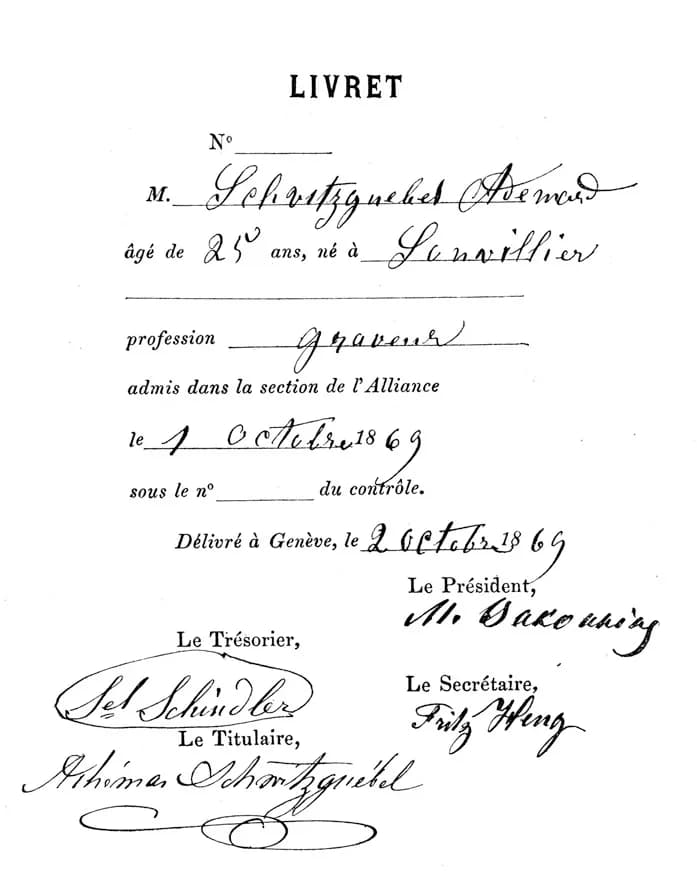 LIVRET
Nº
M. Schvitzguebel Ademard
âgé de 25 ans, né à Sonvillier
profession graveur
admis dans la section de l'Alliance
le 1 Octobre 1869
sous le nº du contrôle.
Délivré à Genève, le 2 Octobre 1869
Le Président,
M. Bakounine
Le Trésorier,
Sel Schindler
Le Secrétaire,
Fritz Heng
Le Titulaire,
Adhémar Schwitzguébel